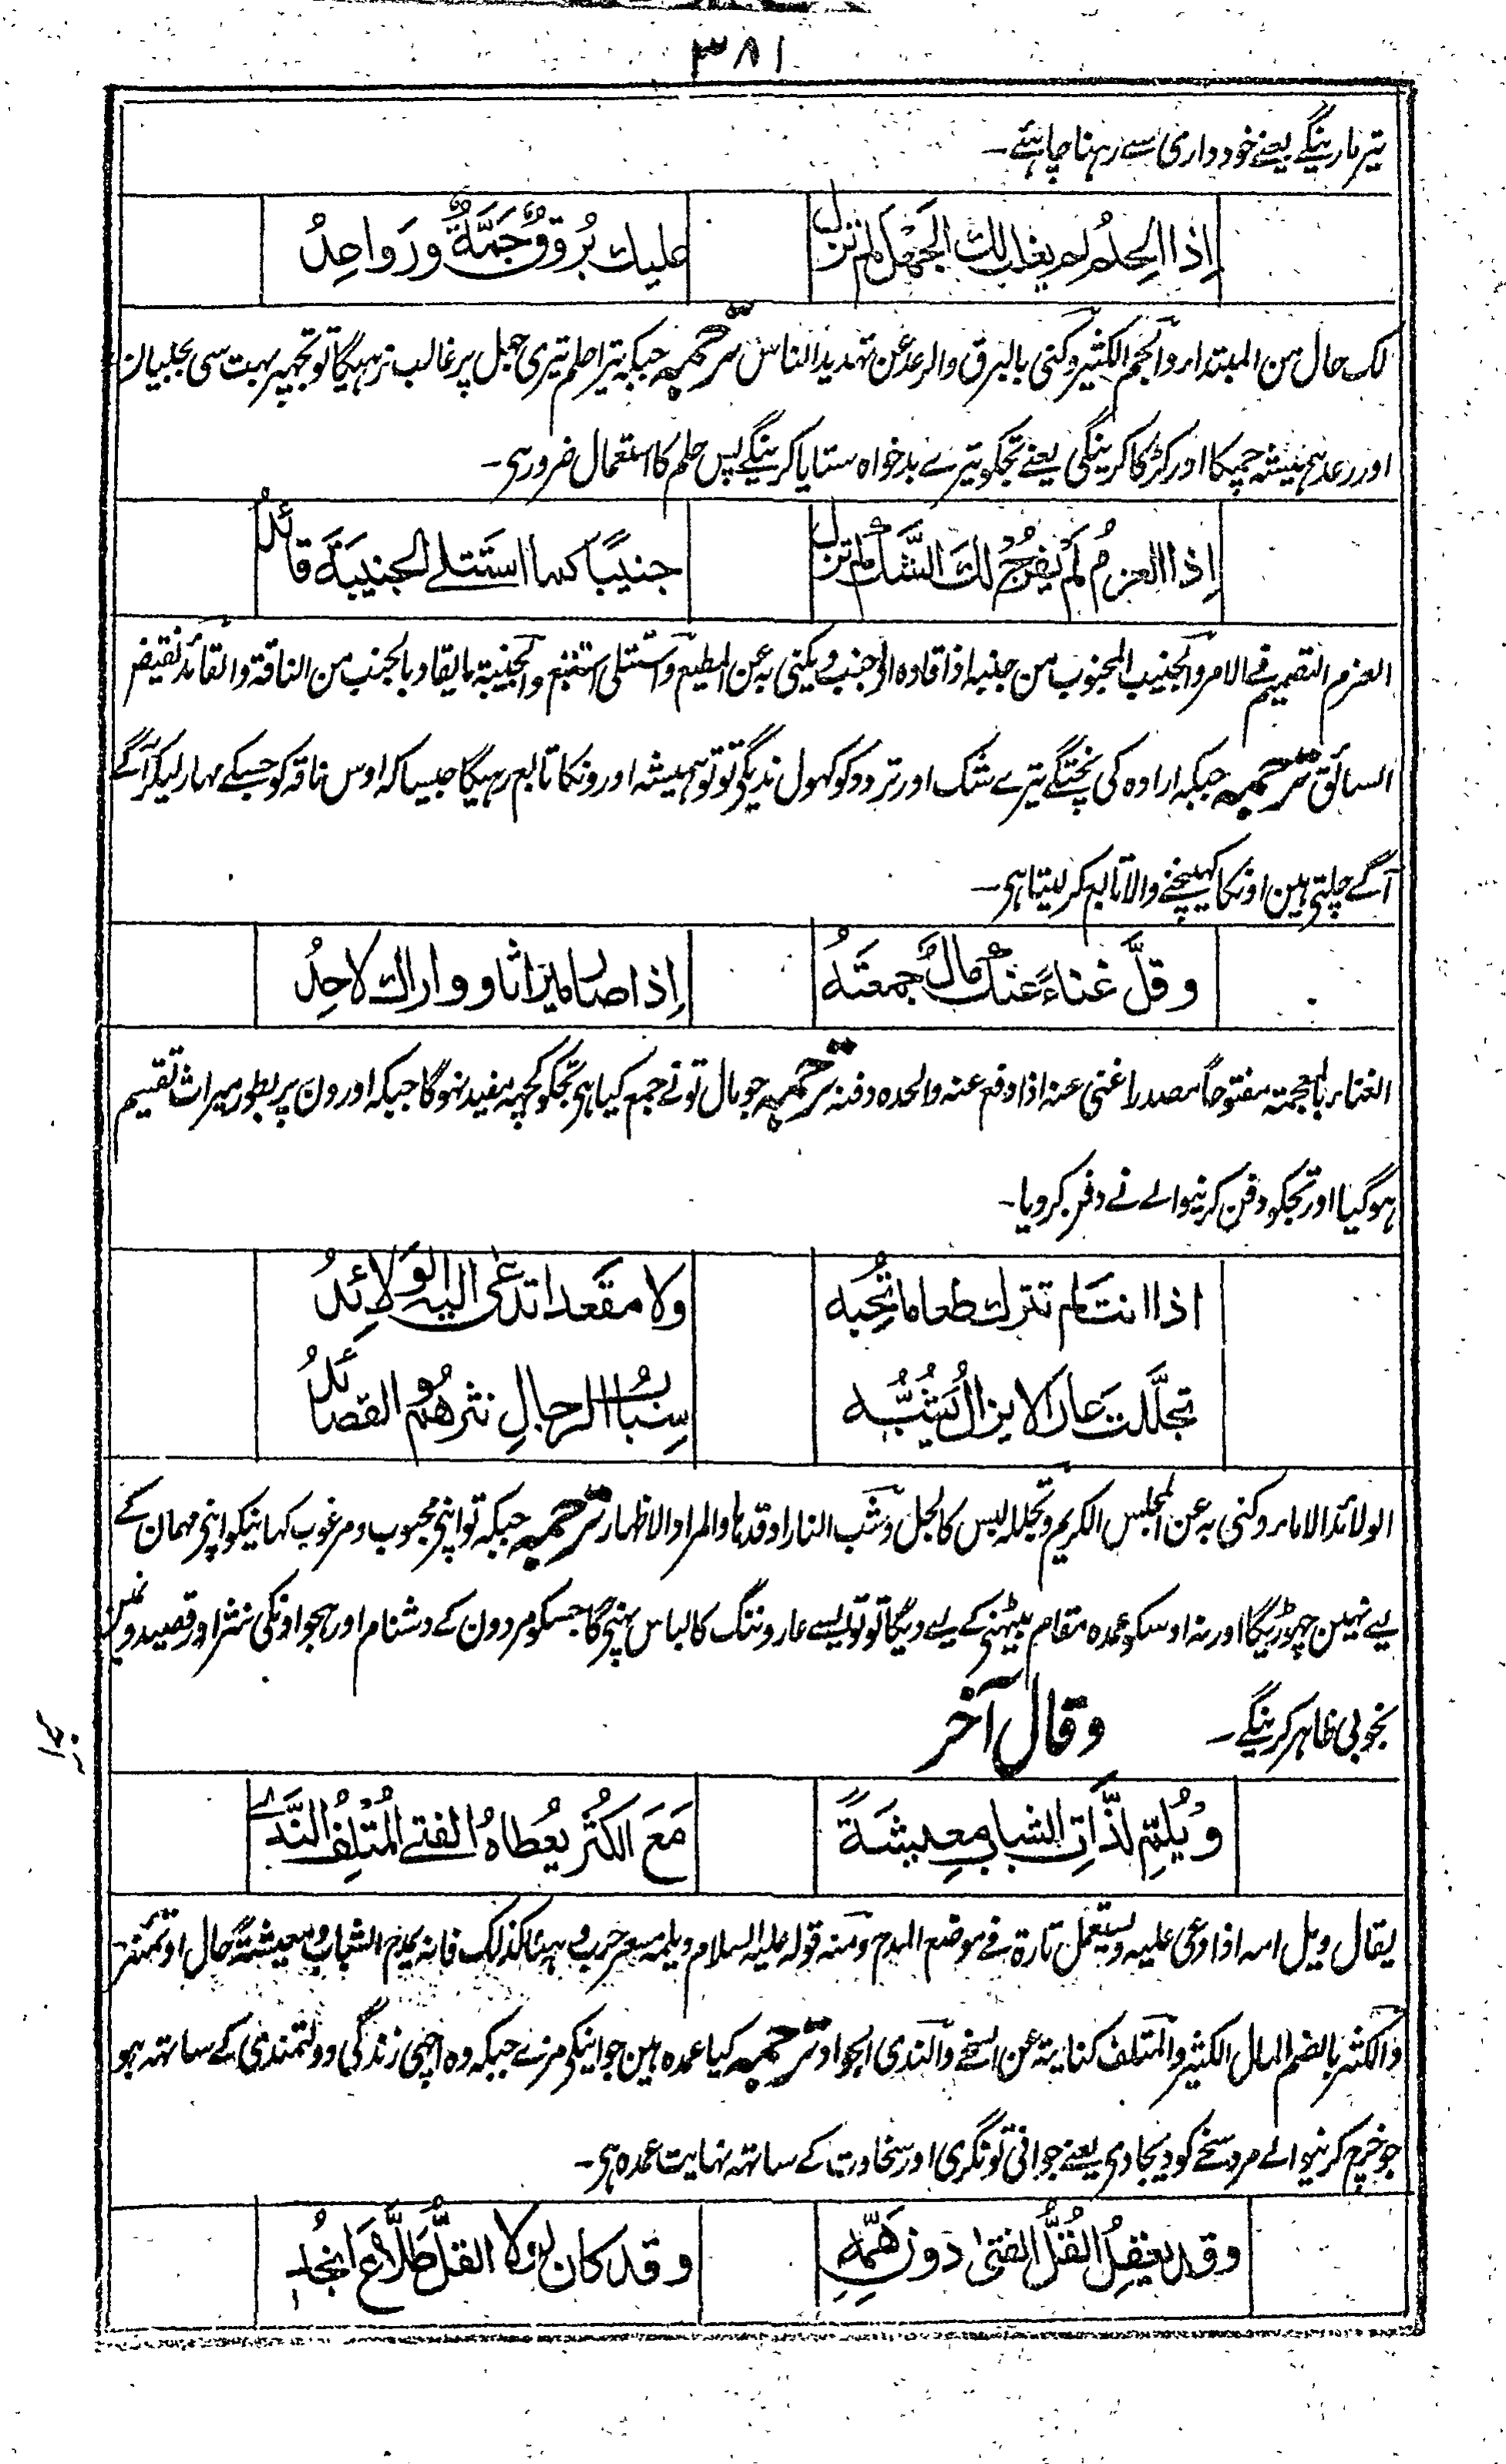 ۳۸۱
تیر مارینگے یعنے خودداری سے رہنا چاہئے۔
إذا الحِلمُ لم يغلب لك الجَهْلَ لم تزل عليك بُروقٌ جَمَّةٌ ورَواعِدُ
لک حال من المبتدا والجم الکثیر وکنی بالبرق والرعد عن تہدید الناس ترجمہ جبکہ تیرا حلم تیری جہل پر غالب نرہیگا تو تجہپر بہت سی بجلیان
اور رعد ہمیشہ چمکا اور کڑکا کرینگی یعنے تجکو تیرے بدخواہ ستایا کرینگے پس حلم کا استعمال ضرور ہی۔
إذا العزمُ لم يَفرُجْ لك الشَّكَّ لم تزل جنيبًا كما استَتلى الجنيبَةَ قائدُ
العزم التصمیم فے الامر والجنیب المجنوب من جنبہ اذا قادہ الی جنب ویکنی بہ عن المطیع واستتلی استتبع والجنیبۃ مایقاد بالجنب من الناقۃ والقائد نقیض
السائق ترجمہ جبکہ ارادہ کی پختگے تیرے شک اور تردد کو کہول ندیگی تو تو ہمیشہ اورونکا تابع رہیگا جیسا کہ اوس ناقہ کو جسکے مہار لیکر آگے
آگے چلتی ہین اونکا کہینچنے والا تابع کرلیتا ہی۔
وقلَّ غناءً عنك مالٌ جمعتَهُ إذا صار ميراثا وواراك لاحِدُ
الغناء بالمعجمۃ مفتوحاً مصدر اغنی عنہ اذا دفع عنہ والحدہ دفنہ ترجمہ جو مال تونے جمع کیا ہی تجکو کچہہ مفید نہوگا جبکہ اورون پر بطور میراث تقسیم
ہوگیا اور تجکو دفن کرنیوالے نے دفن کردیا۔
اذا انت لم تترك طعاما تُحِبه ولا مقعدا تدعى اليه الوَلائِدُ
تجلَّلتَ عارا لا يزال يَشُبُّه سِبابُ الرجالِ نثرهُم والقصائدُ
الولائد الاماء وکنی بہ عن المجلس الکریم وتجللہ لبس کالجل وشب النار اوقدہا والمراد الاظہار ترجمہ جبکہ تو اپنی محبوب ومرغوب کہانیکو اپنی مہمان کے
لیے نہین چہوڑیگا اور نہ اوسکو عمدہ مقام بیٹہنی کے لیے دیگا تو تو ایسے عار وننگ کا لباس پہنیگا جسکو مردون کے دشنام اور ہجو اونکی نثر اور قصیدونمین
بخوبی ظاہر کرینگے۔ وقال آخر
وَيْلُمِّ لذَّاتِ الشبابِ معيشةً مَعَ الكُثْرِ يُعطاهُ الفتى المُتْلِفُ النَّدِي
یقال ویل امہ اذا دعی علیہ ویستعمل تارۃ فے موضع المدح ومنہ قولہ علیہ السلام ویلمہ مسعر حرب وہہنا کذلک فانہ یمدح الشباب ومعیشۃ حال او تمیز
والکثر بالضم المال الکثیر والمتلف کنایۃ عن السخے والندی الجواد ترجمہ کیا عمدہ ہین جوانیکی مزے جبکہ وہ اچہی زندگی و دولتمندی کے ساتہہ ہو
جو خرچ کرنیوالے مرد سخے کو دیجاوی یعنے جوانی تونگری اور سخاوت کے ساتہہ نہایت عمدہ ہی۔
وقد يَعقِلُ القُلُّ الفتى دون هَمِّهِ وقد كان لولا القلُّ طَلَّاعَ انجُدِ